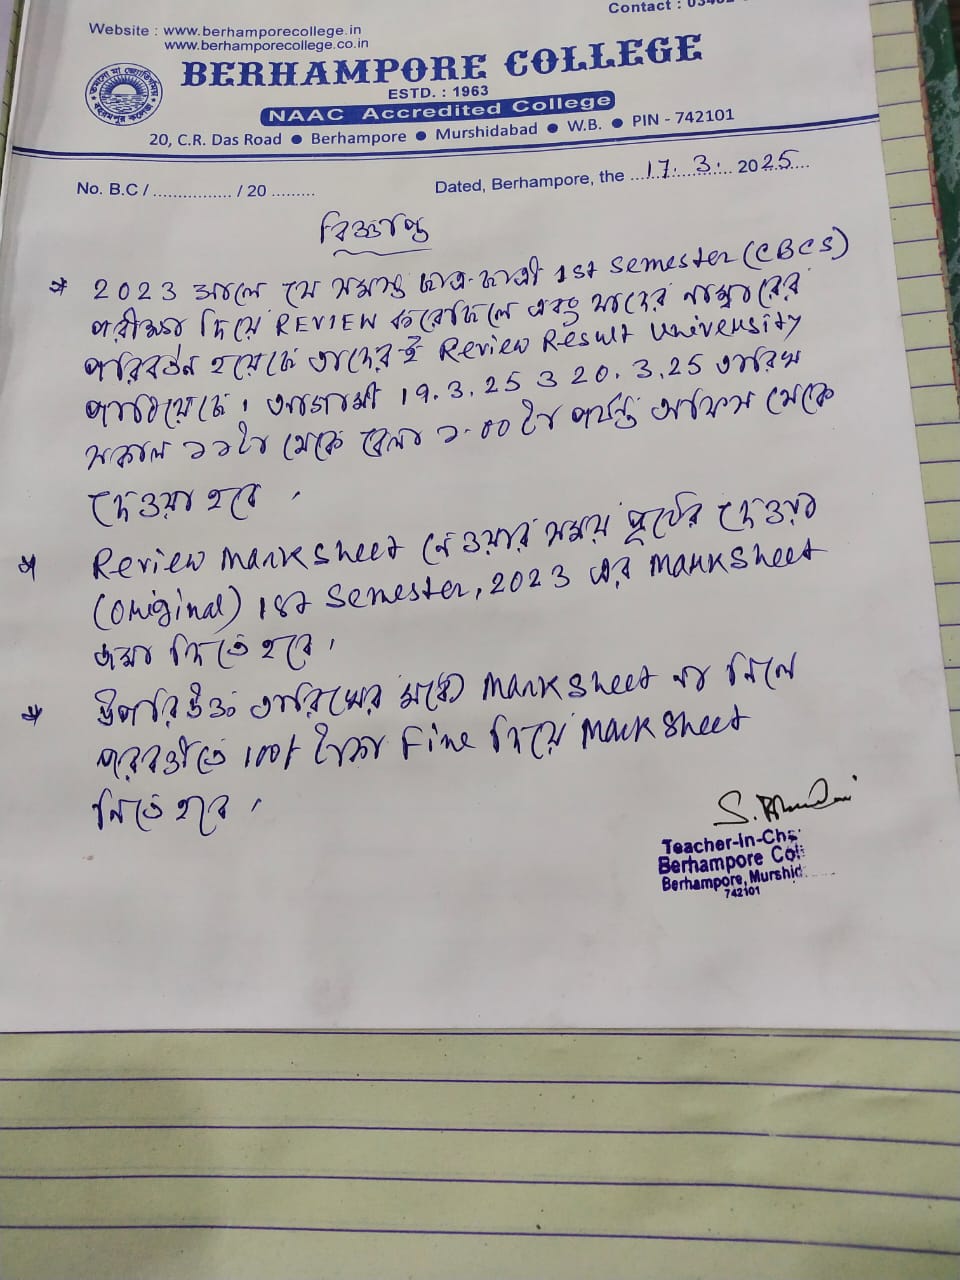 Contact : 03482
Website : www.berhamporecollege.in
www.berhamporecollege.co.in
BERHAMPORE COLLEGE
ESTD. : 1963
NAAC Accredited College
20, C.R. Das Road ● Berhampore ● Murshidabad ● W.B. ● PIN - 742101
No. B.C / ................ / 20 .........
Dated, Berhampore, the ...17. 3. ... 2025....
বিজ্ঞপ্তি
* 2023 সালে যে সমস্ত ছাত্র-ছাত্রী 1st semester (CBCS)
পরীক্ষা দিয়ে REVIEW করেছিলে এবং যাদের নাম্বারের
পরিবর্তন হয়েছে তাদের-ই Review Result University
পাঠিয়েছে। আগামী 19.3.25 ও 20.3.25 তারিখ
সকাল ১১টা থেকে বেলা ২.০০টা পর্যন্ত অফিস থেকে
দেওয়া হবে।
* Review Marksheet নেওয়ার সময় পূর্বের দেওয়া
(original) 1st semester, 2023 এর Marksheet
জমা দিতে হবে।
* উপরিউক্ত তারিখের মধ্যে Marksheet না নিলে
পরবর্তীতে 100/ টাকা Fine দিয়ে Marksheet
নিতে হবে।
Teacher-In-Cha
Berhampore Col
Berhampore, Murshid
742101